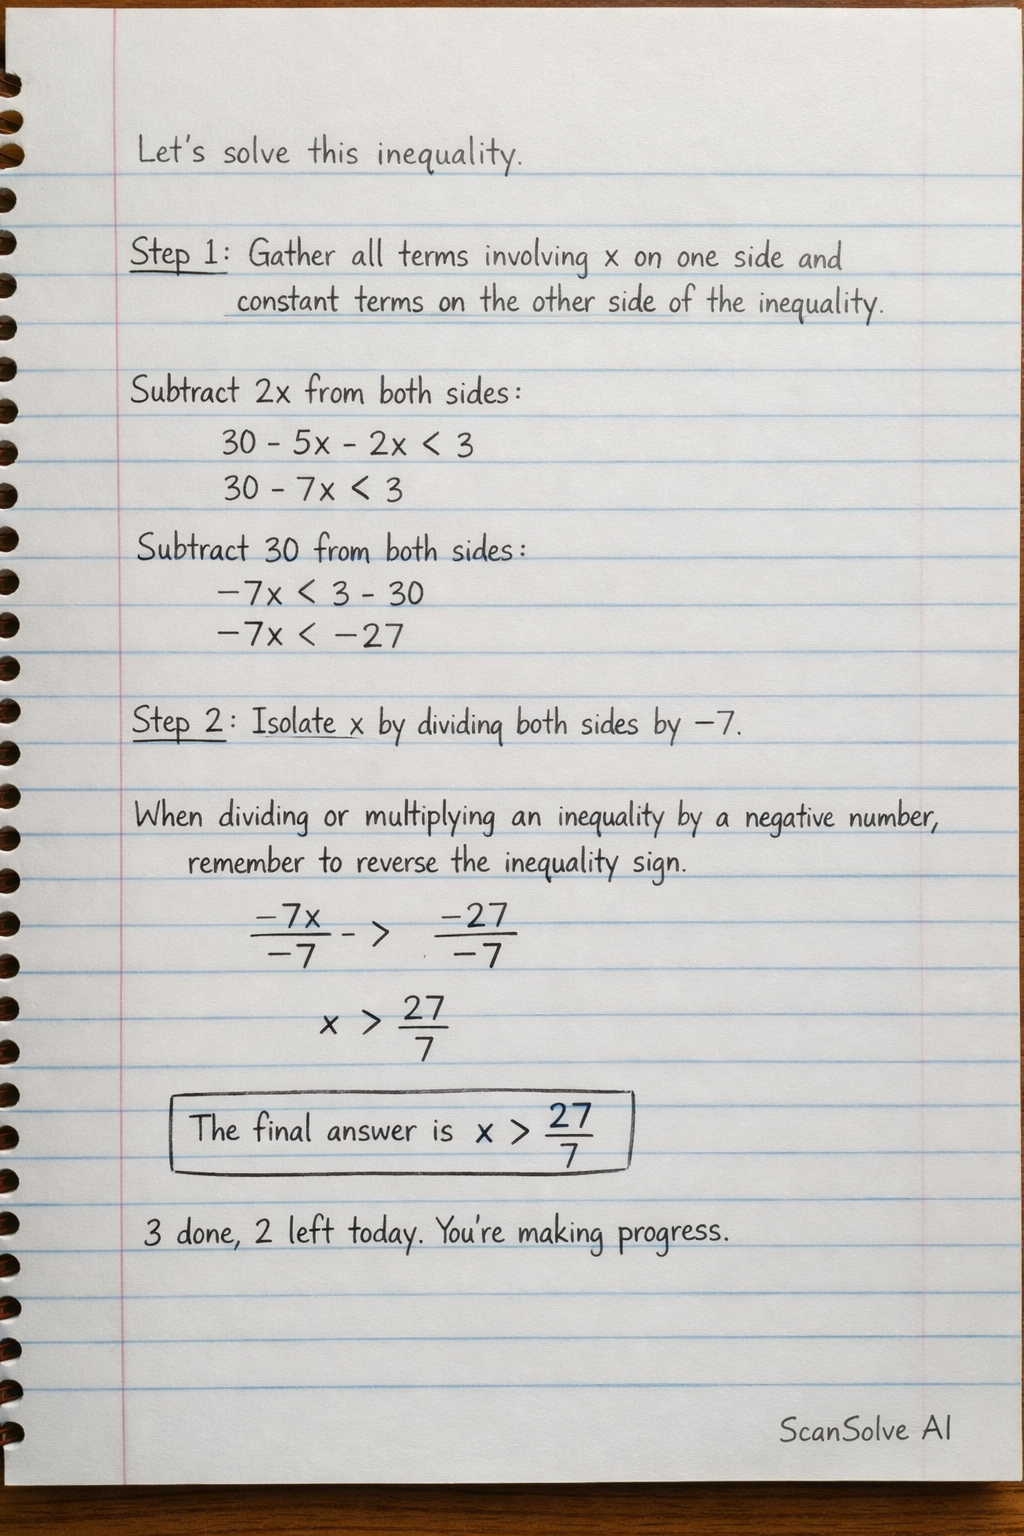 Let's solve this inequality.
Step 1: Gather all terms involving x on one side and
constant terms on the other side of the inequality.
Subtract 2x from both sides:
30 - 5x - 2x < 3
30 - 7x < 3
Subtract 30 from both sides:
-7x < 3 - 30
-7x < -27
Step 2: Isolate x by dividing both sides by -7.
When dividing or multiplying an inequality by a negative number,
remember to reverse the inequality sign.
-7x/-7 - > -27/-7
x > 27/7
The final answer is x > 27/7
3 done, 2 left today. You're making progress.
ScanSolve AI